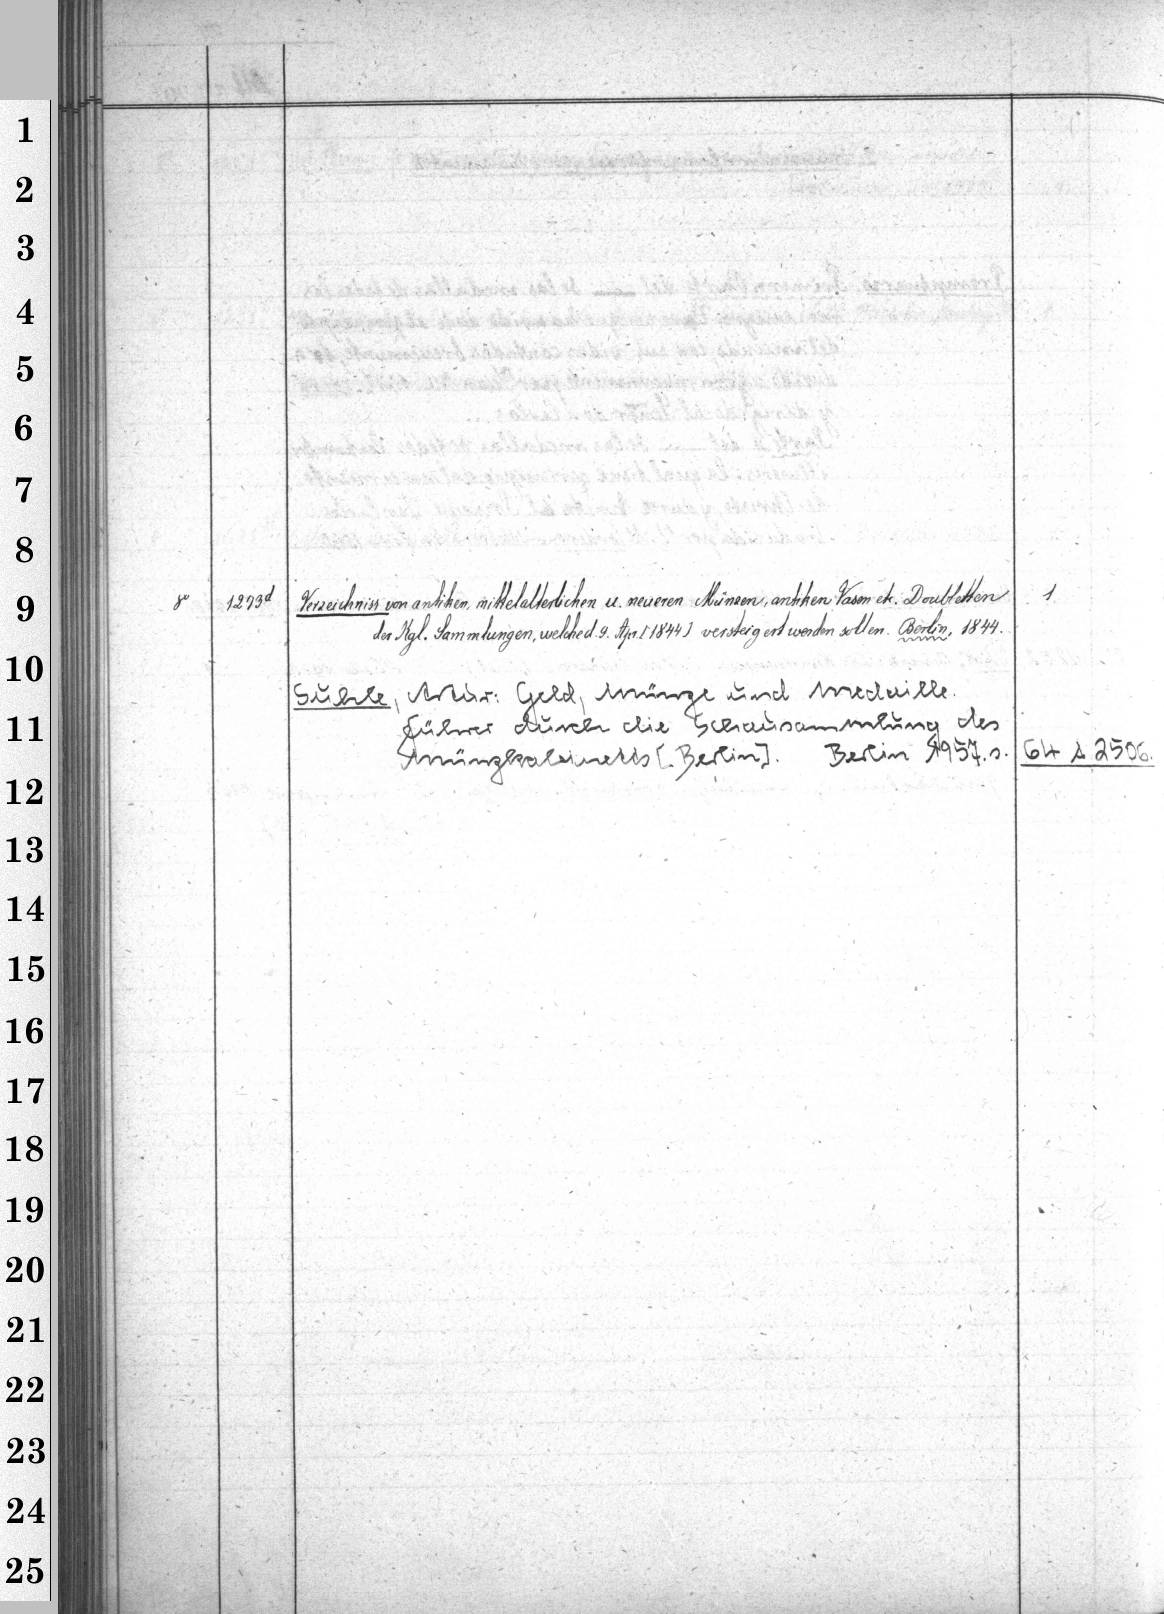 1
2
3
4
5
6
7
8
9
8° 1273d Verzeichniss von antiken, mittelalterlichen u. neueren Münzen, antiken Vasen etc. Doubletten 1
der Kgl. Sammlungen, welche d. 9. Apr. [1844] versteigert werden sollen. Berlin, 1844.
10
Suhle, Artur: Geld, Münze und Medaille.
11
Führer durch die Schausammlung des
Münzkabinetts [Berlin]. Berlin 1957. s. 64 A 2506.
12
13
14
15
16
17
18
19
20
21
22
23
24
25